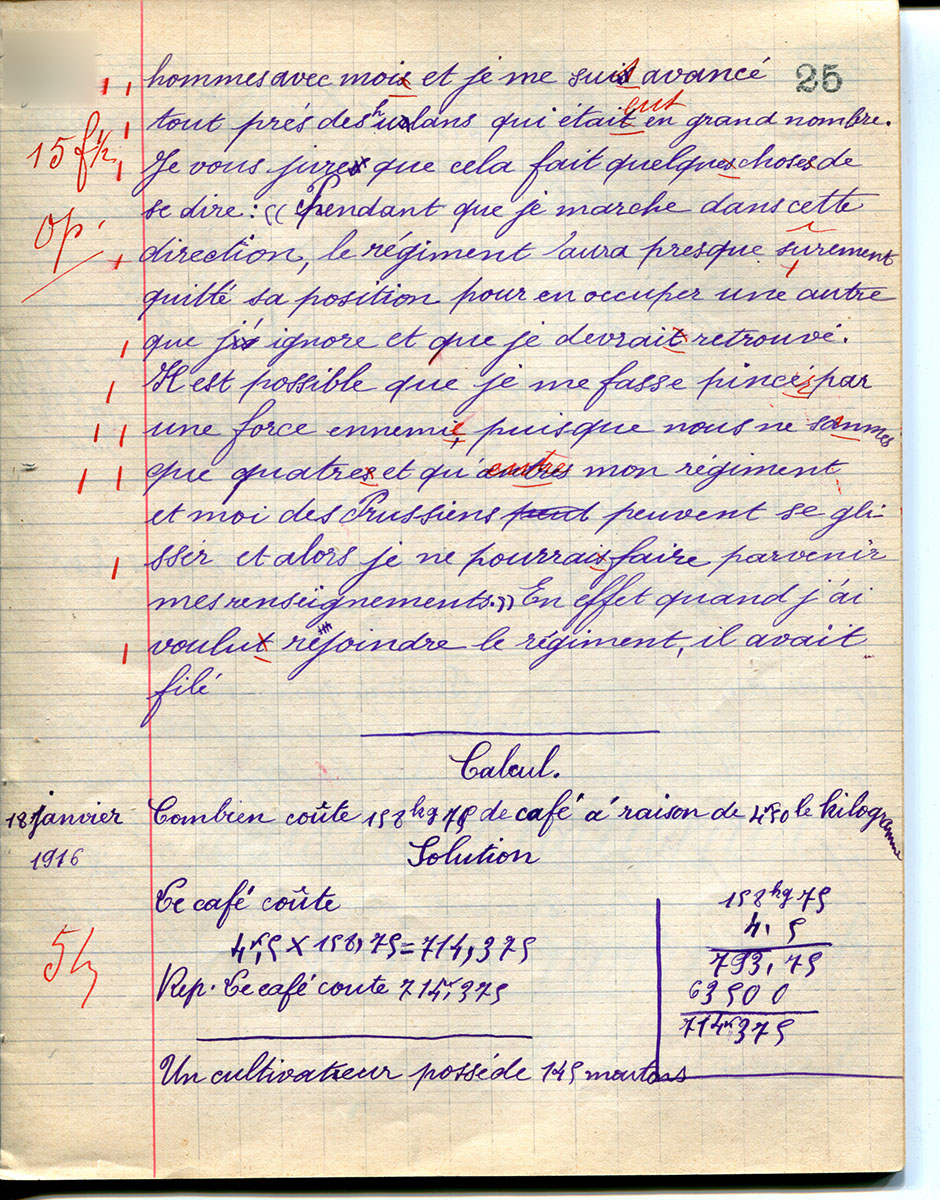 25
hommes avec mois et je me suis avancé
tout prés des uhlans qui était en grand nombre.
15 f½
Je vous jures que cela fait quelques choses de
se dire : « Pendant que je marche dans cette
op.
direction, le régiment aura presque surement
quitté sa position pour en occuper une autre
que j'ignore et que je devrait retrouvé.
Il est possible que je me fasse pincés par
une force ennemie, puisque nous ne sommes
que quatres et qu'entre mon régiment
et moi des Prussiens peuvent se gli-
sser et alors je ne pourrais faire parvenir
mes renseignements. » En effet quand j'ai
voulut rejoindre le régiment, il avait
filé
Calcul.
18 janvier
1916
Combien coûte 158kg75 de café à raison de 4f50 le kilogramme
Solution
Le café coûte
158kg75
4f,5 × 158,75 = 714,375
4,5
793,75
Rep. Le café coute 714f,375
63500
714f375
Un cultivateur posséde 145 moutons